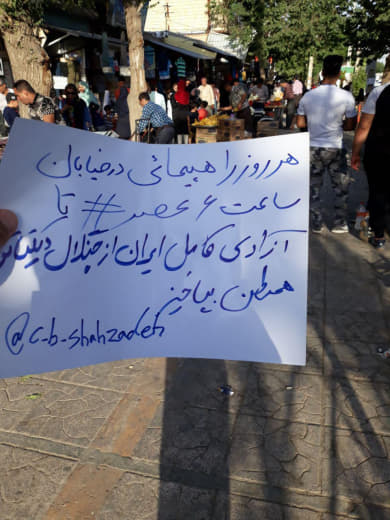 هر روز راهپیمائی در خیابان
ساعت ۶ عصر # تا
آزادی کامل ایران از چنگال دیکتاتور
هموطن بپاخیز
@c-b-shahzadeh